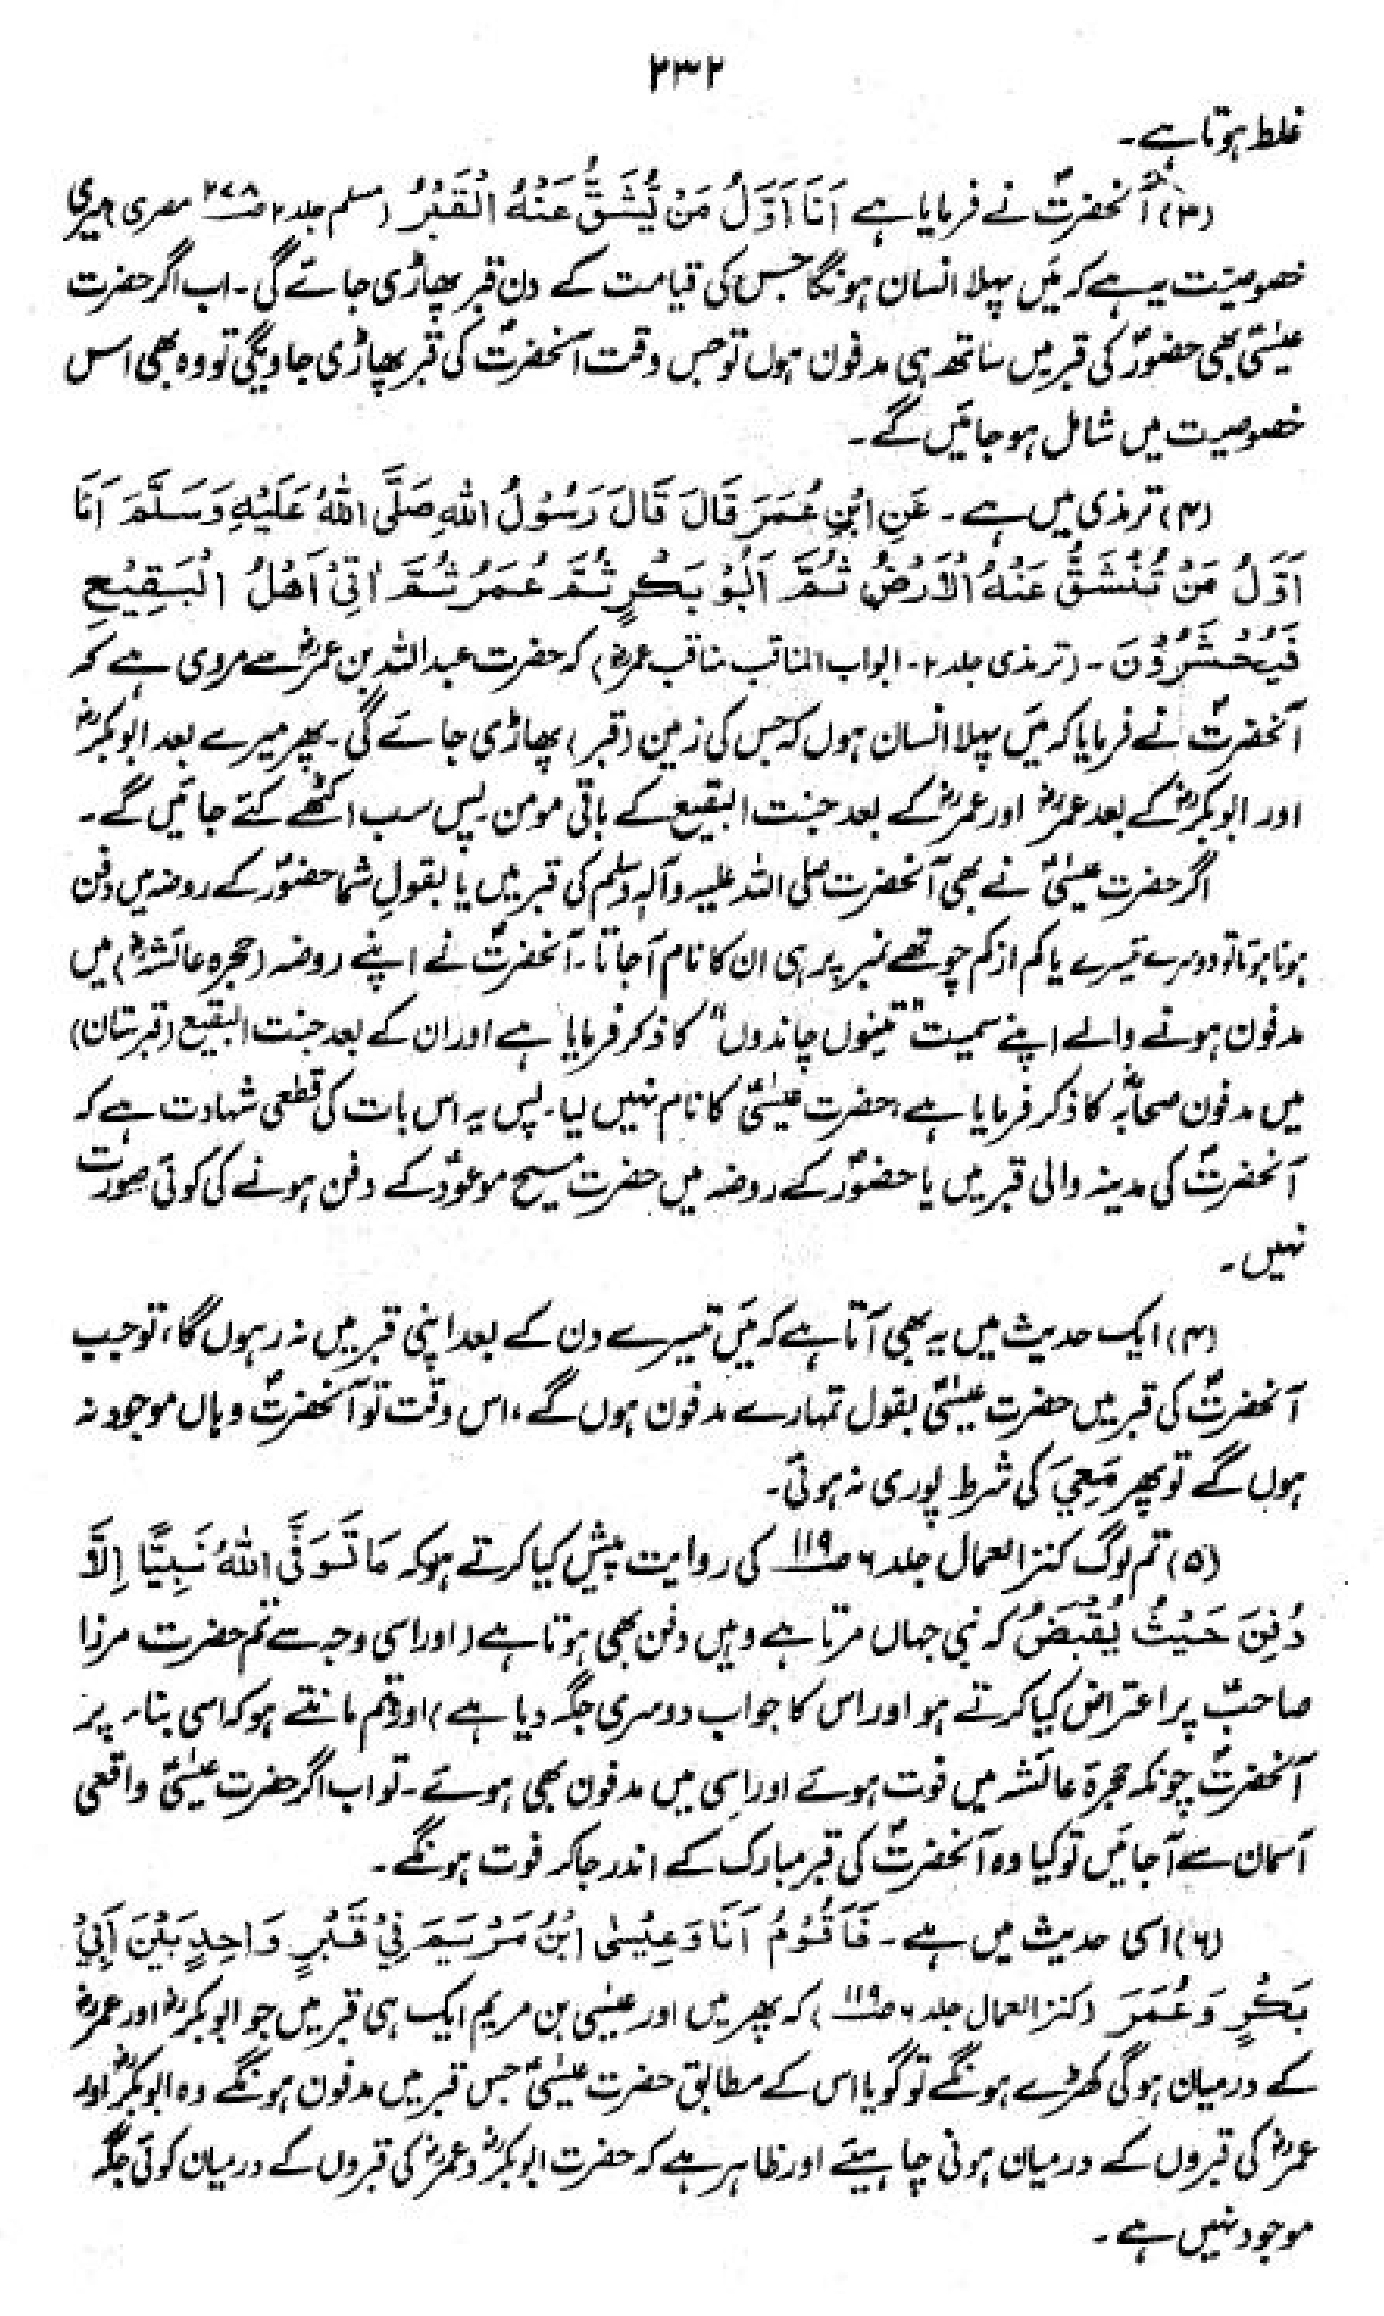 ۲۳۲
غلط ہوتا ہے۔
(۳) آنحضرتؐ نے فرمایا ہے اَنَا اَوَّلُ مَنْ يُّشَقُّ عَنْهُ الْقَبْرُ (مسلم جلد ۲ ص ۲۴۸ مصری) میری
خصوصیت یہ ہے کہ مَیں پہلا انسان ہونگا جس کی قیامت کے دن قبر پھاڑی جائے گی۔ اب اگر حضرت
عیسیٰؑ بھی حضورؐ کی قبر میں ساتھ ہی مدفون ہوں تو جس وقت آنحضرتؐ کی قبر پھاڑی جاویگی تو وہ بھی اس
خصوصیت میں شامل ہو جائیں گے۔
(۴) ترمذی میں ہے۔ عَنِ ابْنِ عُمَرَ قَالَ قَالَ رَسُوْلُ اللهِ صَلَّى اللهُ عَلَيْهِ وَسَلَّمَ اَنَا
اَوَّلُ مَنْ تَنْشَقُّ عَنْهُ الْاَرْضُ ثُمَّ اَبُوْ بَكْرٍ ثُمَّ عُمَرُ ثُمَّ اٰتِیْ اَهْلُ الْبَقِيْعِ
فَيُحْشَرُوْنَ۔ (ترمذی جلد ۲۔ ابواب المناقب مناقب عمرؓ) کہ حضرت عبداللہ بن عمرؓ سے مروی ہے کہ
آنحضرتؐ نے فرمایا کہ مَیں پہلا انسان ہوں کہ جس کی زمین (قبر) پھاڑی جائے گی۔ پھر میرے بعد ابوبکرؓ
اور ابوبکرؓ کے بعد عمرؓ اور عمرؓ کے بعد جنت البقیع کے باقی مومن۔ پس سب اکٹھے کئے جائیں گے۔
اگر حضرت عیسیٰؑ نے بھی آنحضرت صلی اللہ علیہ وآلہٖ وسلم کی قبر میں یا بقولِ شما حضورؐ کے روضہ میں دفن
ہونا ہوتا تو دوسرے تیسرے یا کم از کم چوتھے نمبر پر ہی ان کا نام آ جاتا۔ آنحضرتؐ نے اپنے روضہ (حجرہ عائشہؓ) میں
مدفون ہونے والے اپنے سمیت "تینوں چاندوں" کا ذکر فرمایا ہے اور ان کے بعد جنت البقیع (قبرستان)
میں مدفون صحابہؓ کا ذکر فرمایا ہے، حضرت عیسیٰؑ کا نام نہیں لیا۔ پس یہ اس بات کی قطعی شہادت ہے کہ
آنحضرتؐ کی مدینہ والی قبر میں یا حضورؐ کے روضہ میں حضرت مسیح موعودؑ کے دفن ہونے کی کوئی صورت
نہیں۔
(۴) ایک حدیث میں یہ بھی آتا ہے کہ مَیں تیسرے دن کے بعد اپنی قبر میں نہ رہوں گا، تو جب
آنحضرتؐ کی قبر میں حضرت عیسیٰؑ بقول تمہارے مدفون ہوں گے، اس وقت تو آنحضرتؐ وہاں موجود نہ
ہوں گے تو پھر مَعِيَ کی شرط پوری نہ ہوئی۔
(۵) تم لوگ کنز العمال جلد ۶ ص ۱۱۹ کی روایت پیش کیا کرتے ہو کہ مَا تَوَفَّى اللهُ نَبِيًّا اِلَّا
دُفِنَ حَيْثُ يُقْبَضُ کہ نبی جہاں مرتا ہے وہیں دفن بھی ہوتا ہے (اور اسی وجہ سے تم حضرت مرزا
صاحبؑ پر اعتراض کیا کرتے ہو اور اس کا جواب دوسری جگہ دیا ہے) اور تم مانتے ہو کہ اسی بناء پر
آنحضرتؐ چونکہ حجرۂ عائشہ میں فوت ہوئے اور اسی میں مدفون بھی ہوئے۔ تو اب اگر حضرت عیسیٰؑ واقعی
آسمان سے آ جائیں تو کیا وہ آنحضرتؐ کی قبر مبارک کے اندر جا کر فوت ہونگے۔
(۶) اسی حدیث میں ہے۔ فَاَقُوْمُ اَنَا وَعِيْسَى ابْنُ مَرْيَمَ فِيْ قَبْرٍ وَاحِدٍ بَيْنَ اَبِيْ
بَكْرٍ وَعُمَرَ (کنز العمال جلد ۶ ص ۱۱۹) کہ پھر میں اور عیسیٰ بن مریم ایک ہی قبر میں جو ابوبکرؓ اور عمرؓ
کے درمیان ہوگی کھڑے ہونگے تو گویا اس کے مطابق حضرت عیسیٰؑ جس قبر میں مدفون ہونگے وہ ابوبکرؓ اور
عمرؓ کی قبروں کے درمیان ہونی چاہیئے اور ظاہر ہے کہ حضرت ابوبکرؓ و عمرؓ کی قبروں کے درمیان کوئی جگہ
موجود نہیں ہے۔